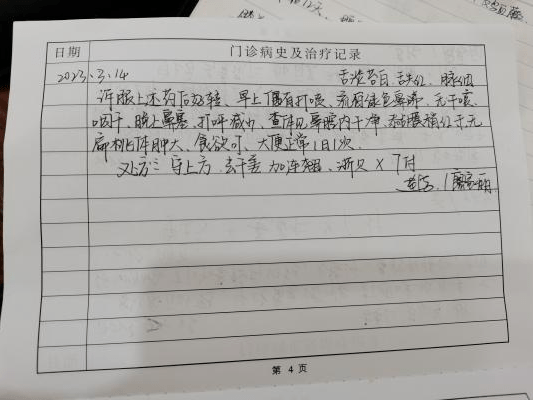 日期 门诊病史及治疗记录
2023.3.14 舌淡苔白 舌尖红 脉细
诉服上述药后好转、早上偶有打嚏、流涕绿色鼻涕、无干咳、
咽干、晚上鼻塞、打呼减少、查体见鼻腔内干净、稍红干、无
扁桃体肿大、食欲可、大便正常1日1次
处方: 守上方 去干姜 加连翘、浙贝 x 7付
第 4 页